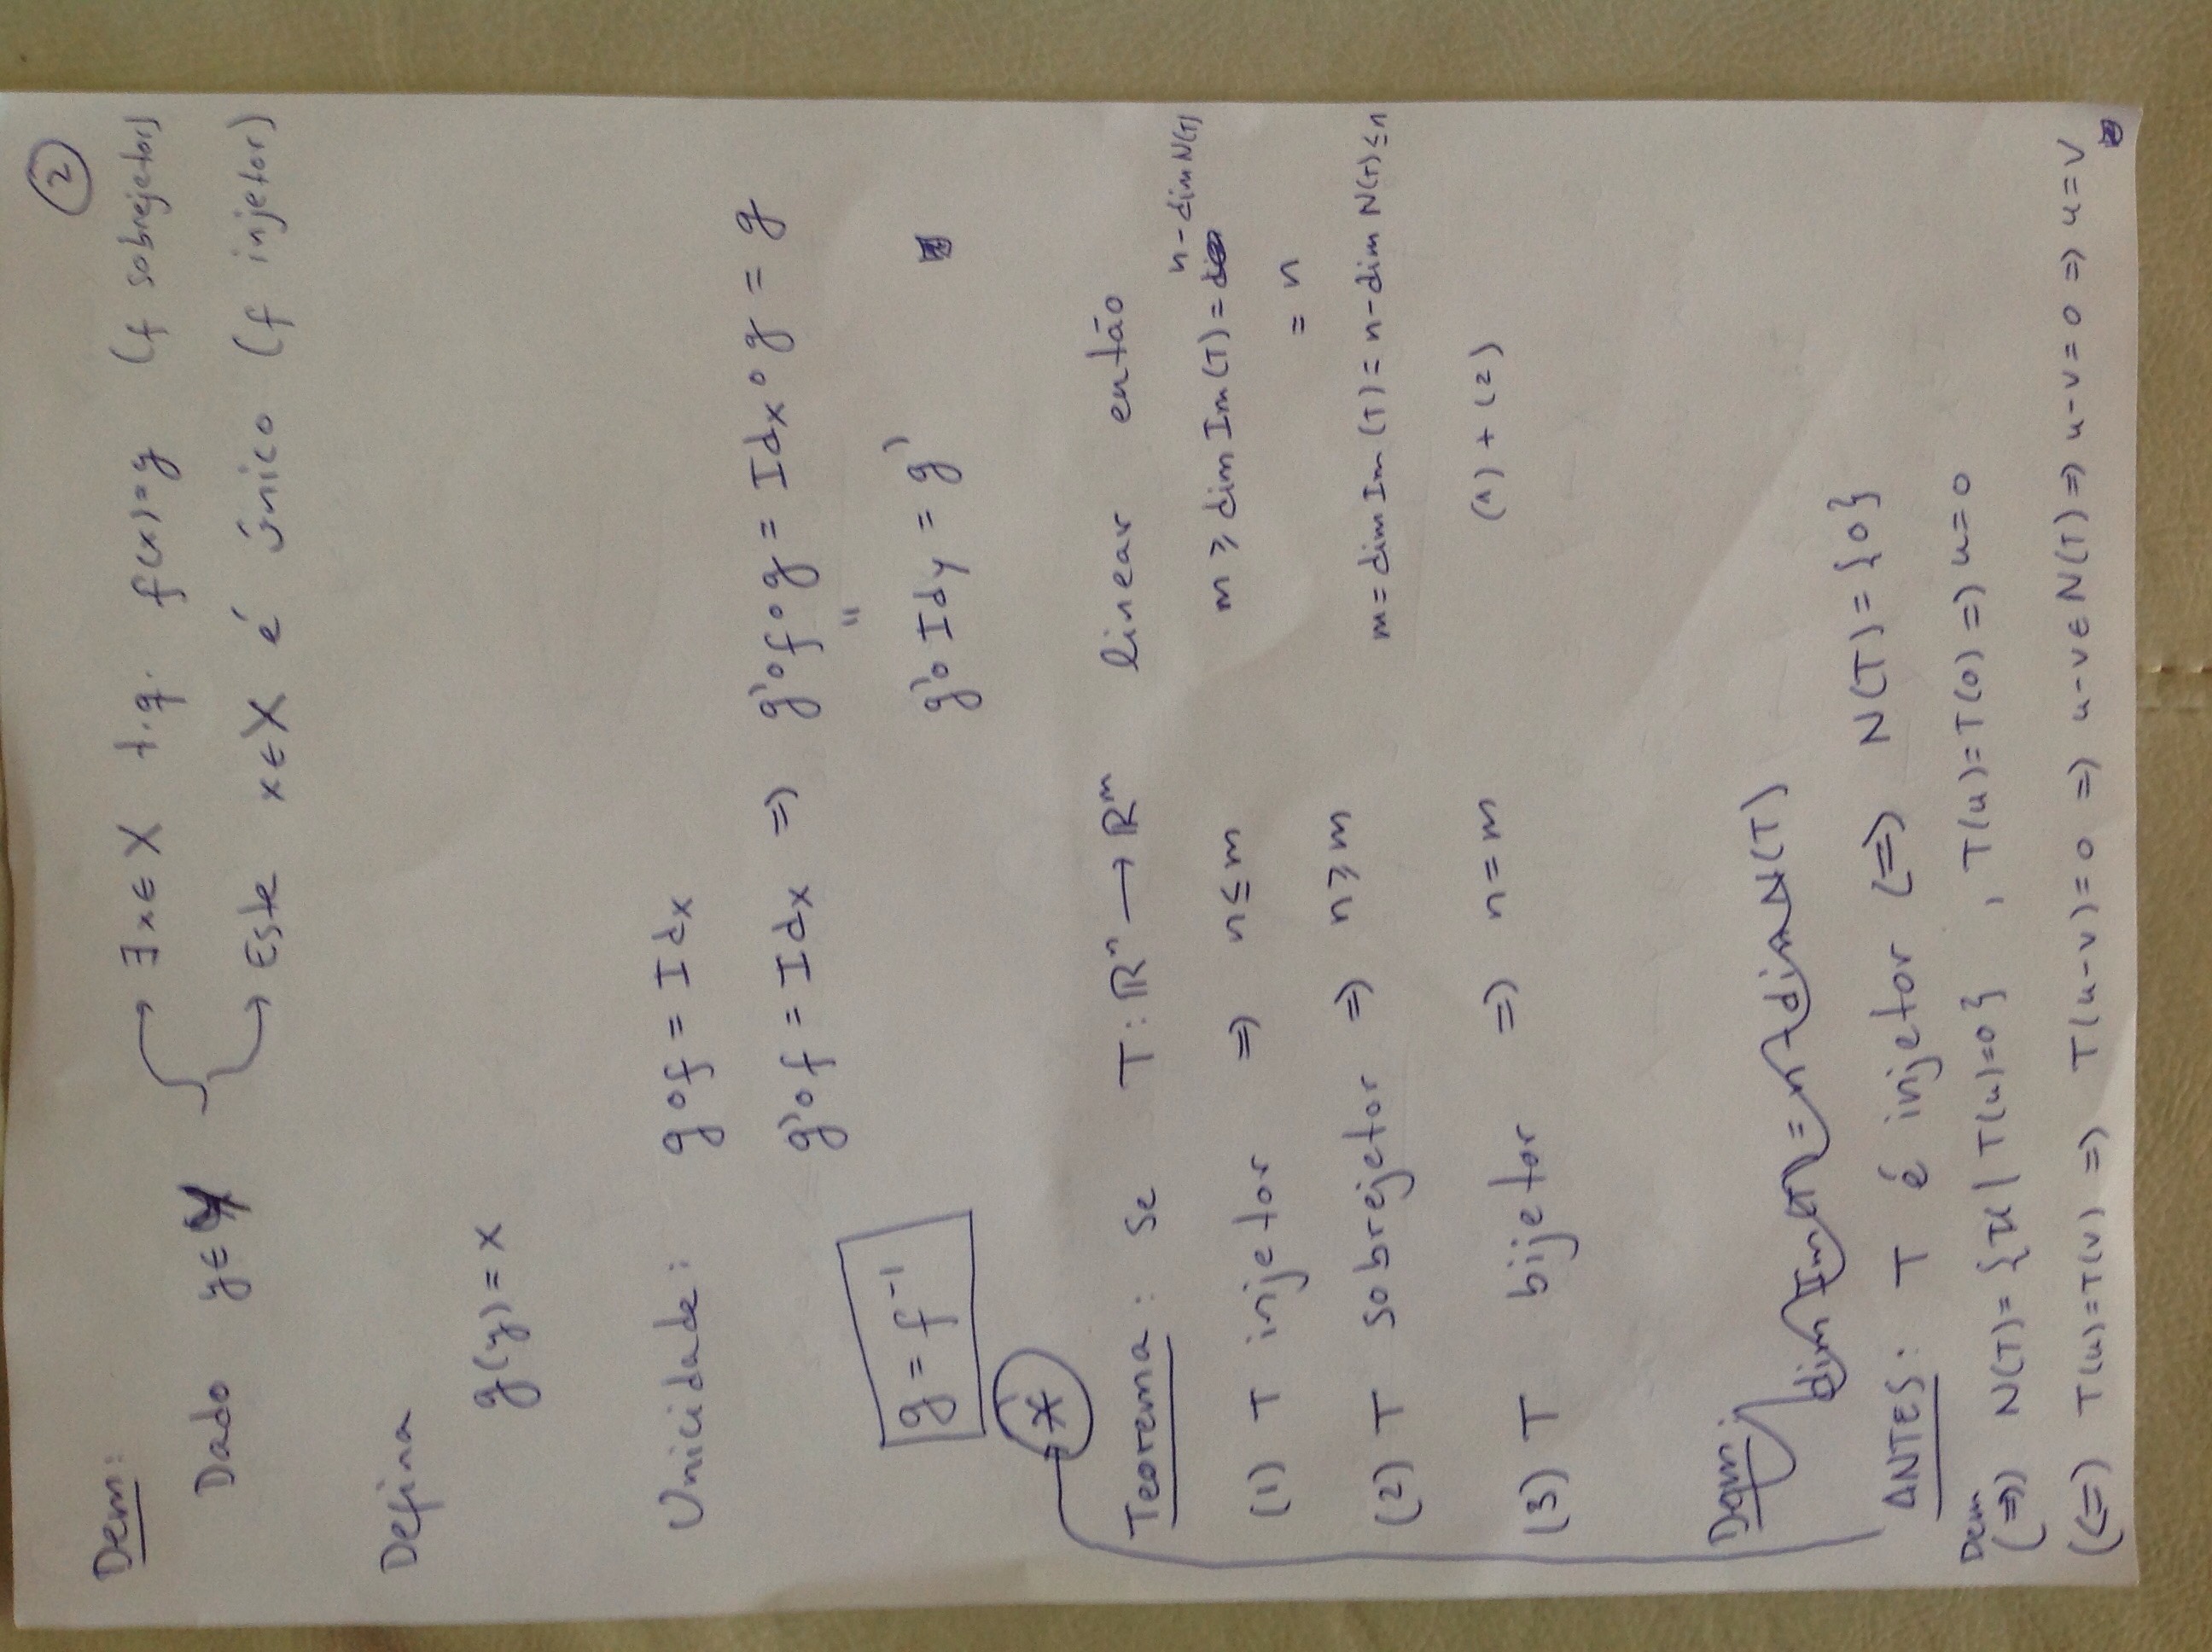 ②
Dem:
Dado y∈Y → ∃x∈X t.q. f(x)=y (f sobrejetor)
→ Este x∈X é único (f injetor)
Defina
g(y)=x
Unicidade: g∘f = Idx
g'∘f = Idx ⇒ g'∘f∘g = Idx∘g = g
"
g = f⁻¹
g'∘Idy = g'
*
Teorema: se T: ℝⁿ → ℝᵐ linear então
(1) T injetor ⇒ n≤m m ≥ dim Im(T) = n-dim N(T)
= n
(2) T sobrejetor ⇒ n≥m m = dim Im(T) = n-dim N(T) ≤ n
(3) T bijetor ⇒ n=m (1)+(2)
Dem: dim Im(T) = n-dim N(T)
ANTES: T é injetor (=) N(T)={0}
Dem
(⇒) N(T)={u|T(u)=0} , T(u)=T(0) ⇒ u=0
(⇐) T(u)=T(v) ⇒ T(u-v)=0 ⇒ u-v∈N(T) ⇒ u-v=0 ⇒ u=v